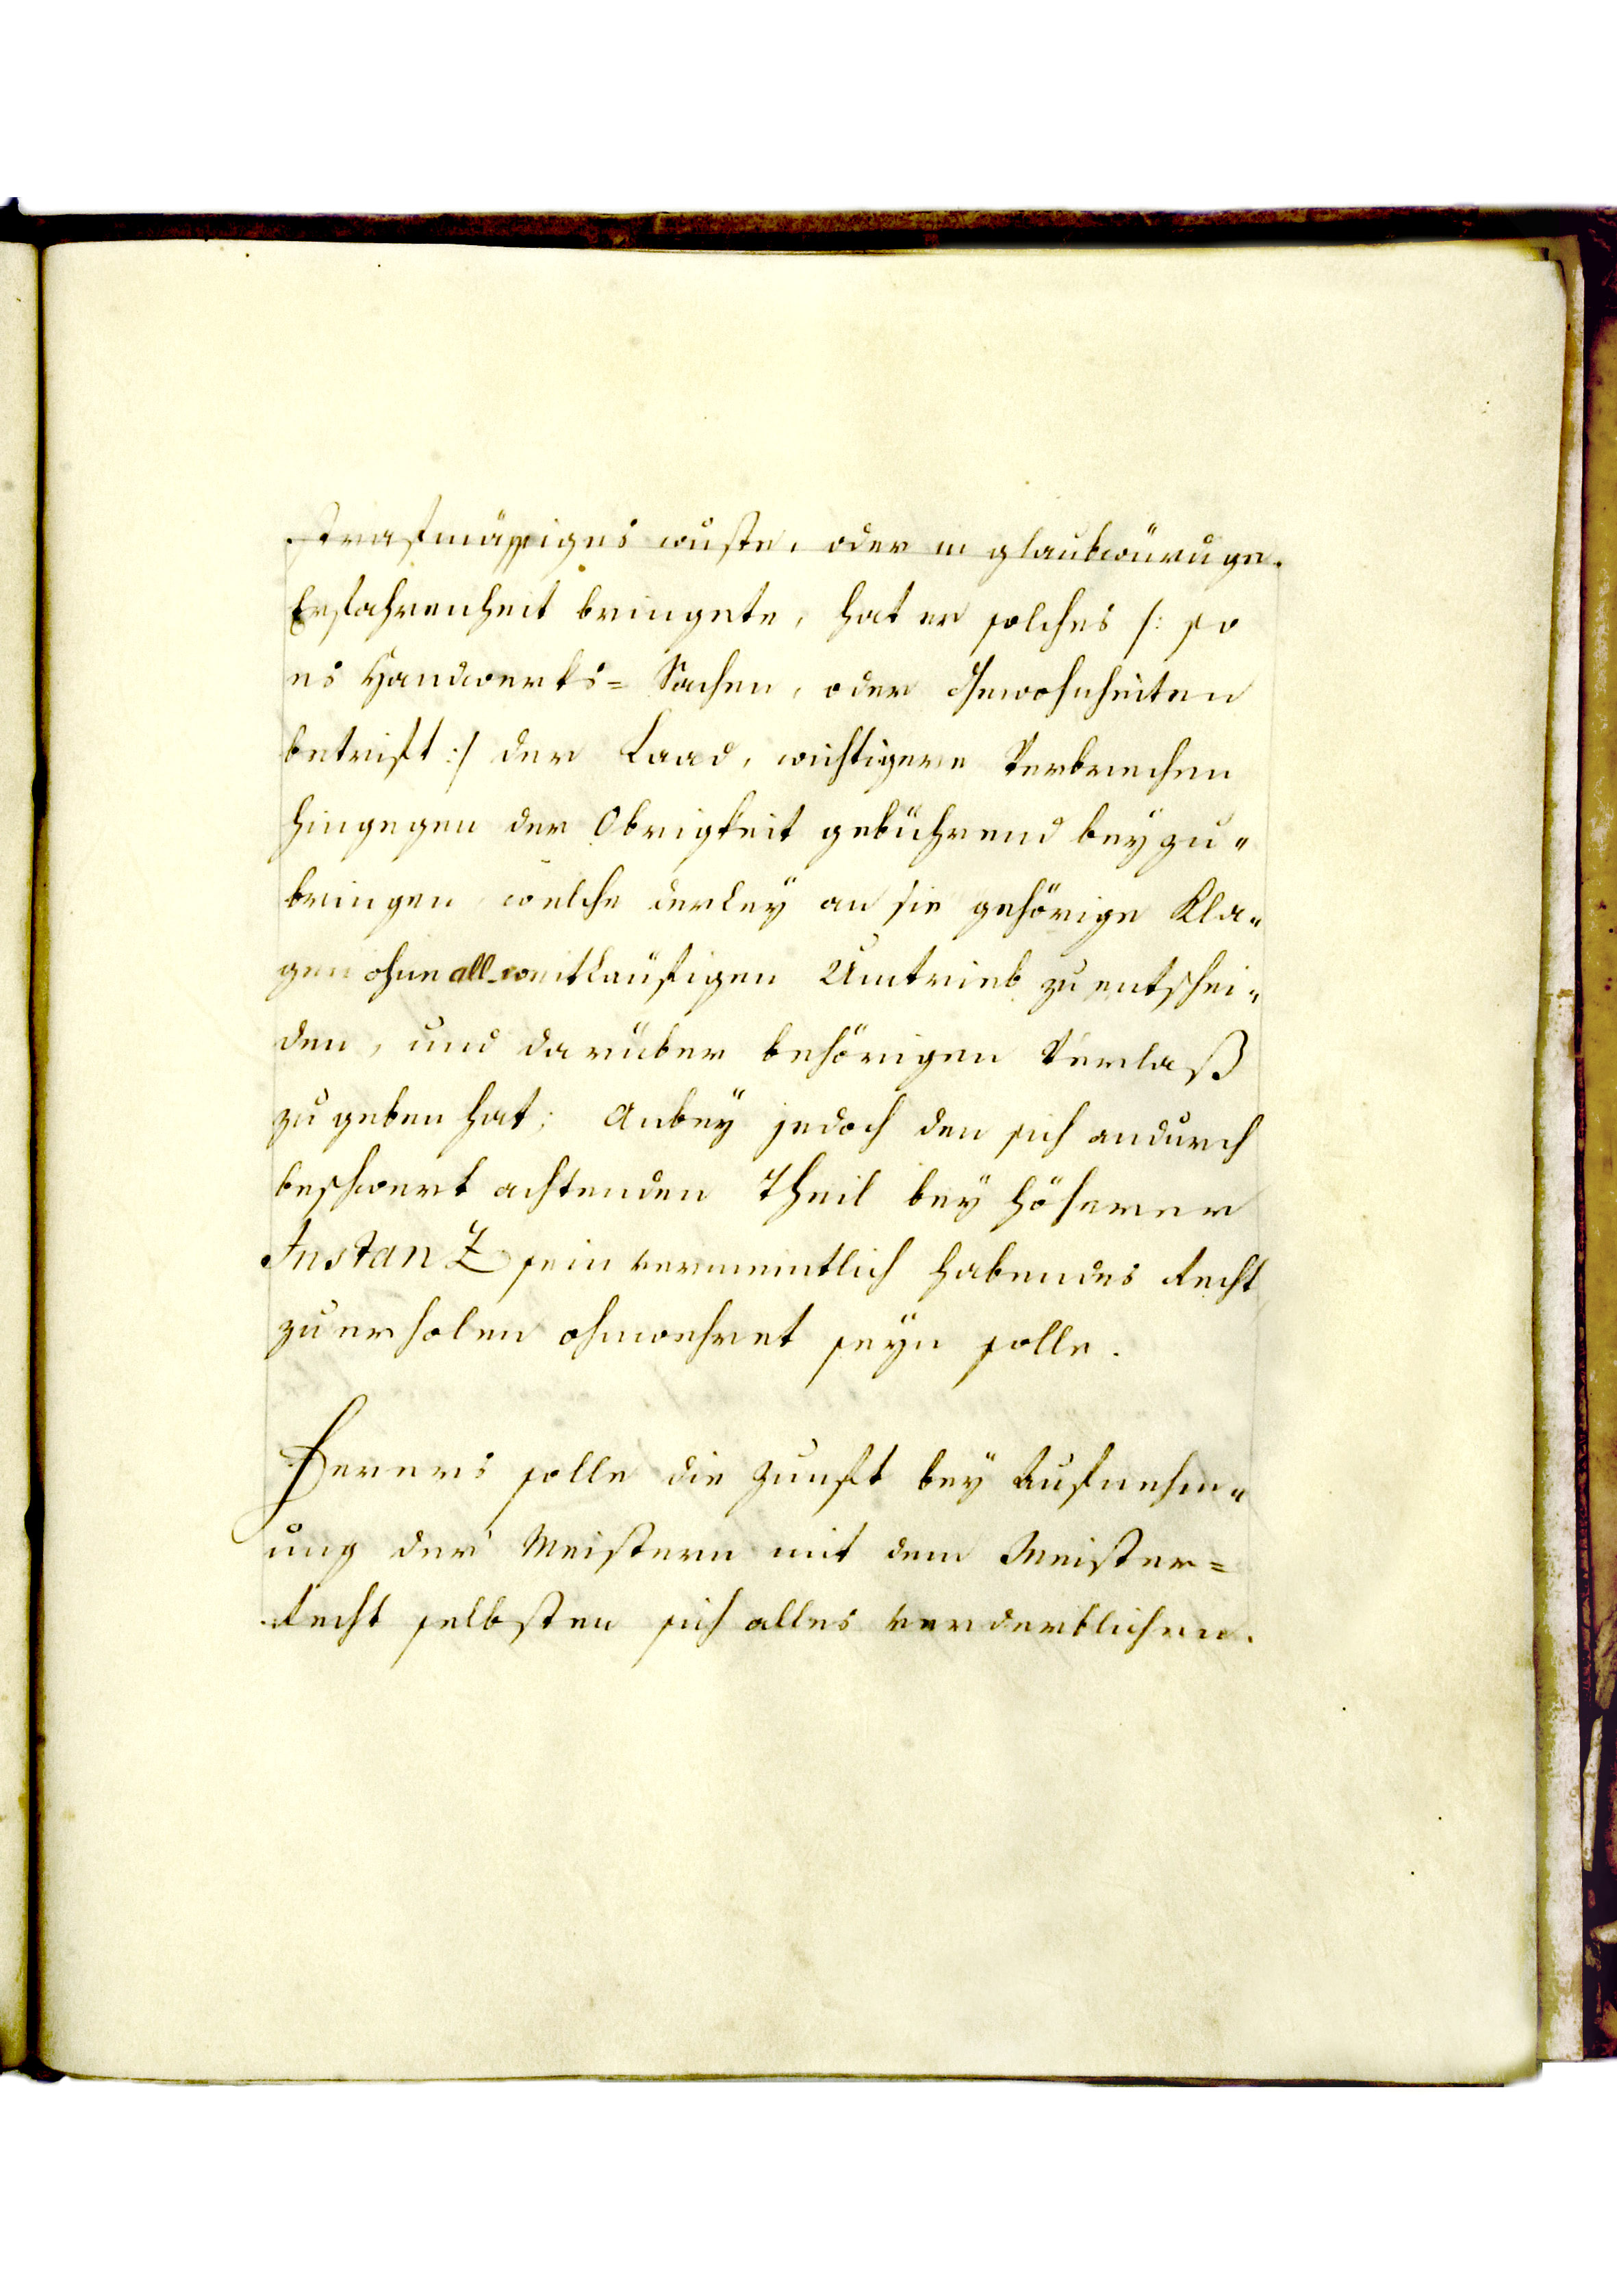 strafmässiges wuste, oder in glaubwürdige
Erfahrenheit bringete, hat er solches /: so
es Handwerks= Sachen, oder Gewohnheiten
betrift :/ der Laad, wichtigere Verbrechen
hingegen der Obrigkeit gebührend beyzu"
bringen welche derleÿ an sie gehörige Kla"
gen ohne all weitläufigen Umtrieb zu entschei"
den, und darüber behörigen Verlaß
zu geben hat; Anbeÿ jedoch den sich andurch
beschwert achtenden Theil beÿ höherer
InstanZ sein vermeintlich habendes Recht
zu erholen ohnwehret seÿn solle.
Ferners solle die Zunft beÿ Aufnehm"
ung der Meistern mit dem Meister=
Recht selbsten sich alles verderblichen